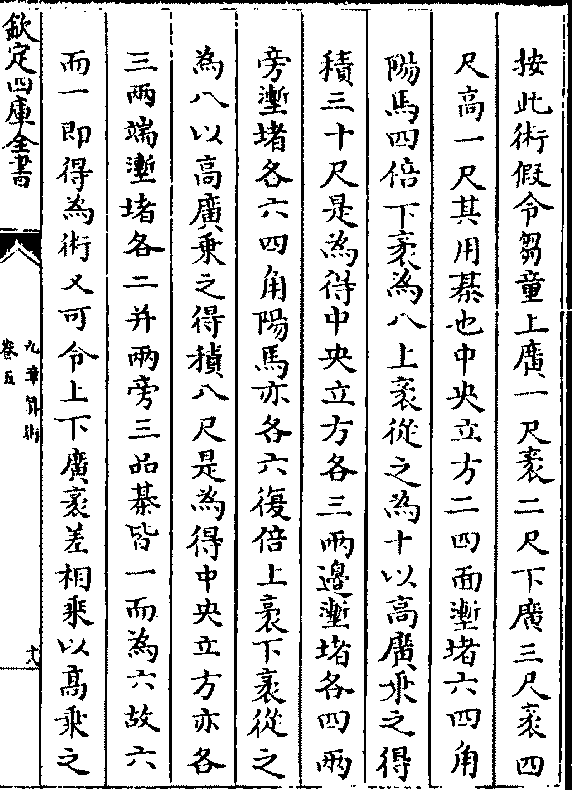 按此術假令芻童上廣一尺袤二尺下廣三尺袤四
尺高一尺其用棊也中央立方二四面壍堵六四角
陽馬四倍下袤為八上袤從之為十以高廣乘之得
積三十尺是為得中央立方各三兩邊壍堵各四兩
旁壍堵各六四角陽馬亦各六復倍上袤下袤從之
為八以高廣乘之得積八尺是為得中央立方亦各
三兩端壍堵各二并兩旁三品棊皆一而為六故六
而一即得為術又可令上下廣袤差相乘以高乘之
欽定四庫全書
九章算術
卷五
十八